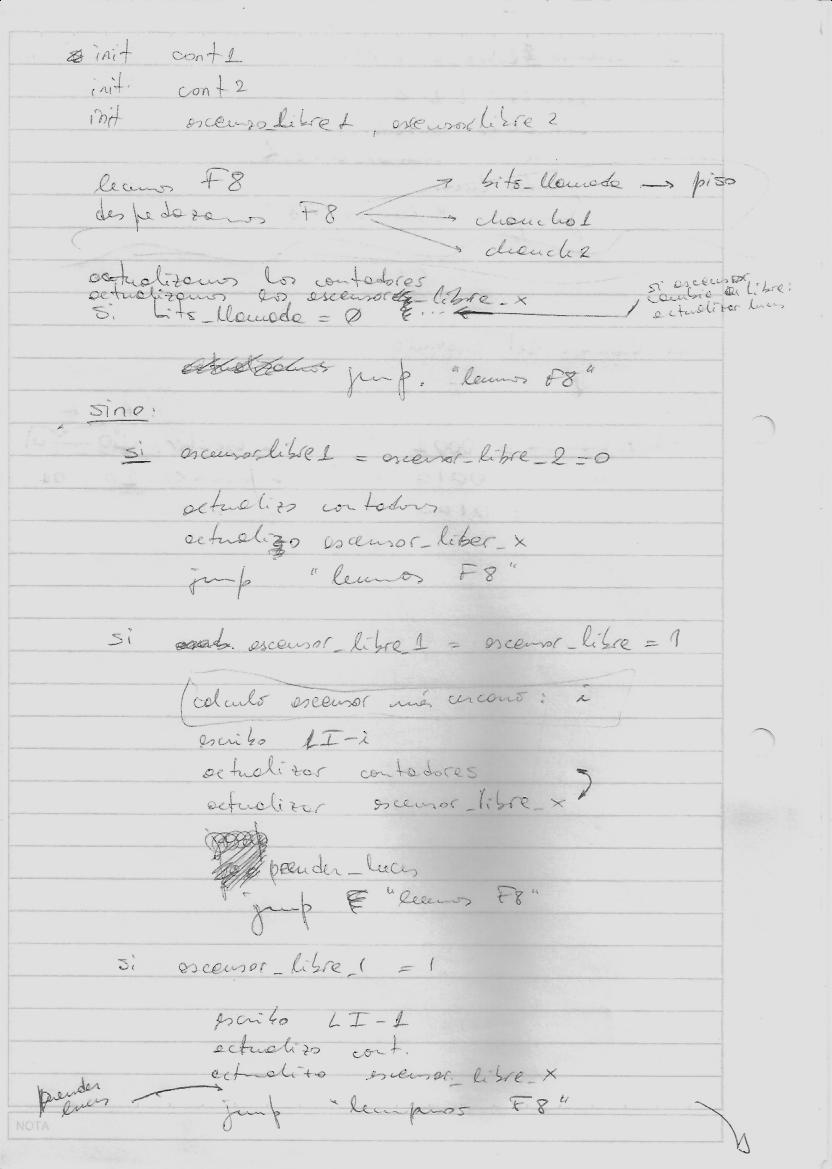 init cont1
init. cont2
init ascensor_libre1, ascensor libre 2
leemos F8 → bits_llamada → piso
despedazamos F8 → chancho1
→ chanch2
actualizamos los contadores
actualizamos los ascensores_libre_x
si ascensor
cambia a libre:
actualizar luces
Si bits_llamada = Ø
jmp. "leemos F8"
sino:
si ascensor libre 1 = ascensor_libre_2 = 0
actualizo contadores
actualizo ascensor_liber_x
jump "leemos F8"
si ascensor_libre_1 = ascensor_libre = 1
calculo ascensor más cercano: i
escribo LI-i
actualizar contadores
actualizar ascensor_libre_x
prender_luces
jump "leemos F8"
si ascensor_libre_1 = 1
escribo LI-1
actualizo cont.
actualizo ascensor_libre_x
prender
luces
jump "leempmos F8"
NOTA